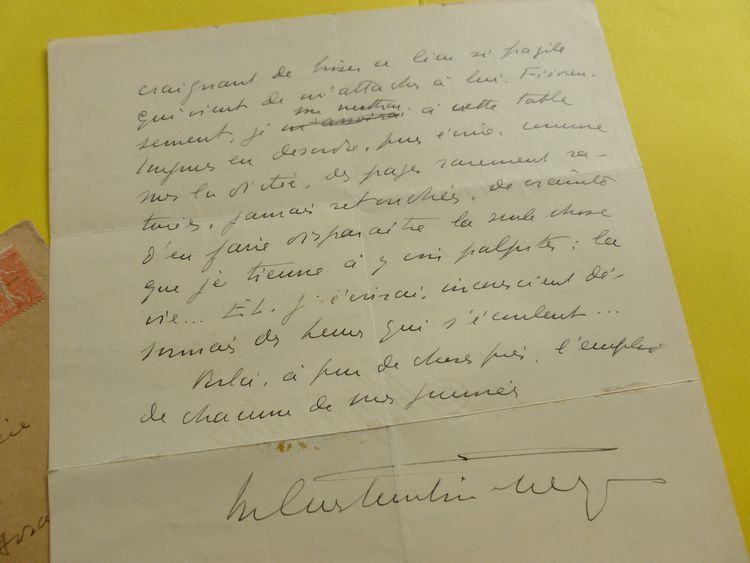 craignant de briser ce lien si fragile
qui vient de m'attacher à lui. Fiévreu-
sement, je m'assoirai me mettrai à cette table
longues en désordre, puis j'écrirai, comme
sous la dictée, des pages rarement ra-
turées, jamais retouchées, de crainte
d'en faire disparaître la seule chose
que je tienne à y voir palpiter : la
vie... Et, j'écrirai, inconscient dé-
sormais des heures qui s'écoulent...
Voilà, à peu de choses près, l'emploi
de chacune de mes journées